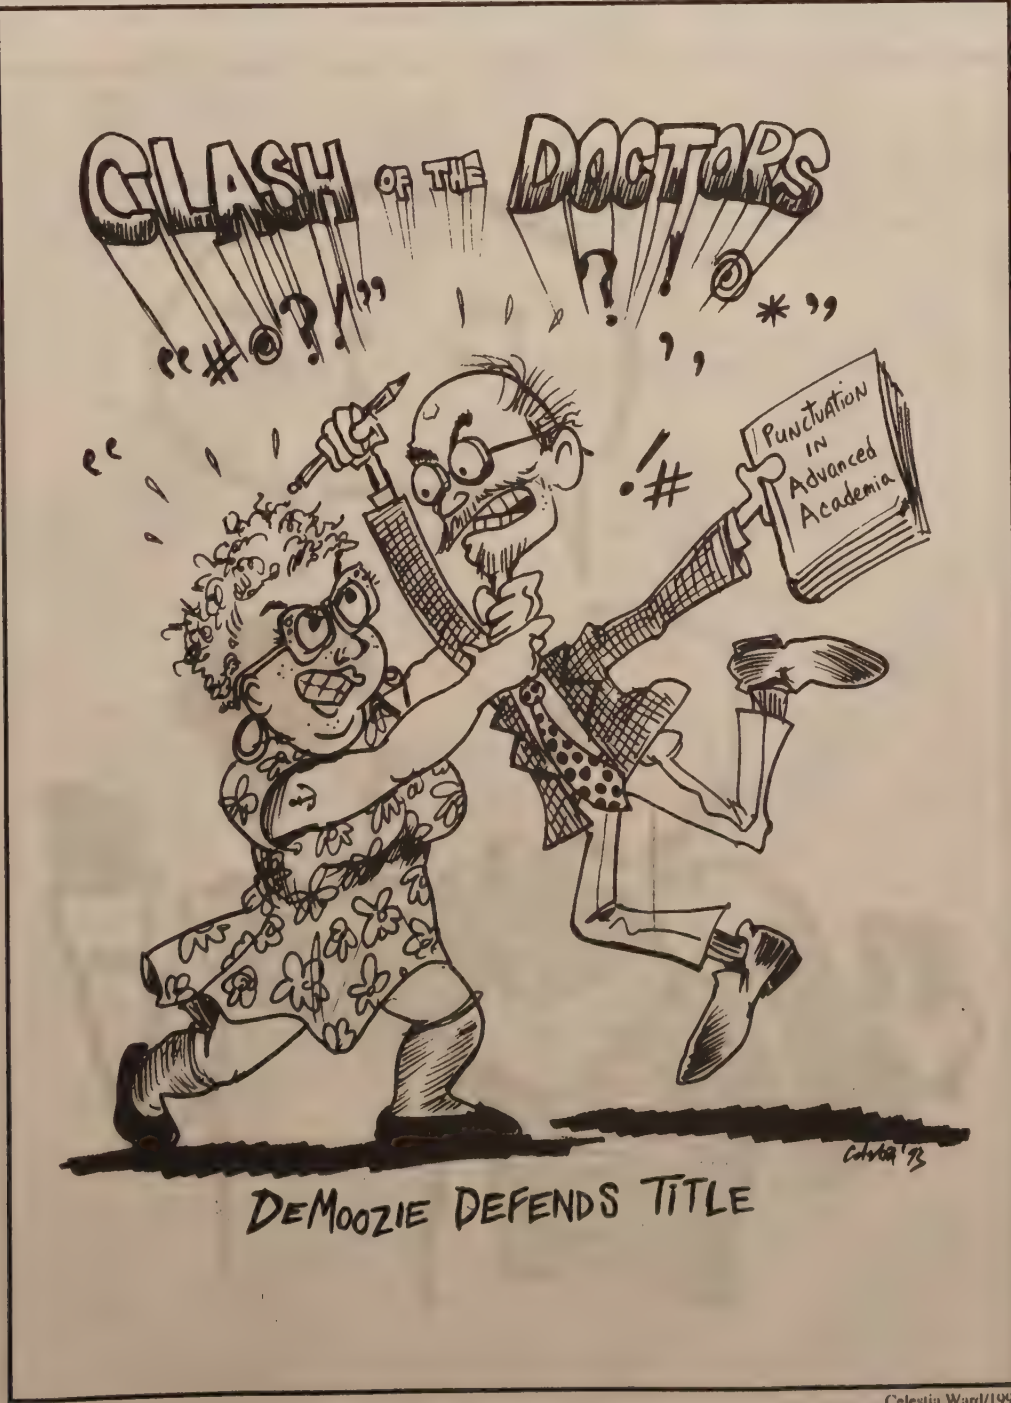 CLASH OF THE DOCTORS
? ! @
“#@?!” * ”
, ,
“
!#
PUNCTUATION
IN
Advanced
Academia
'93
DEMOOZIE DEFENDS TITLE
Celestia Ward/199